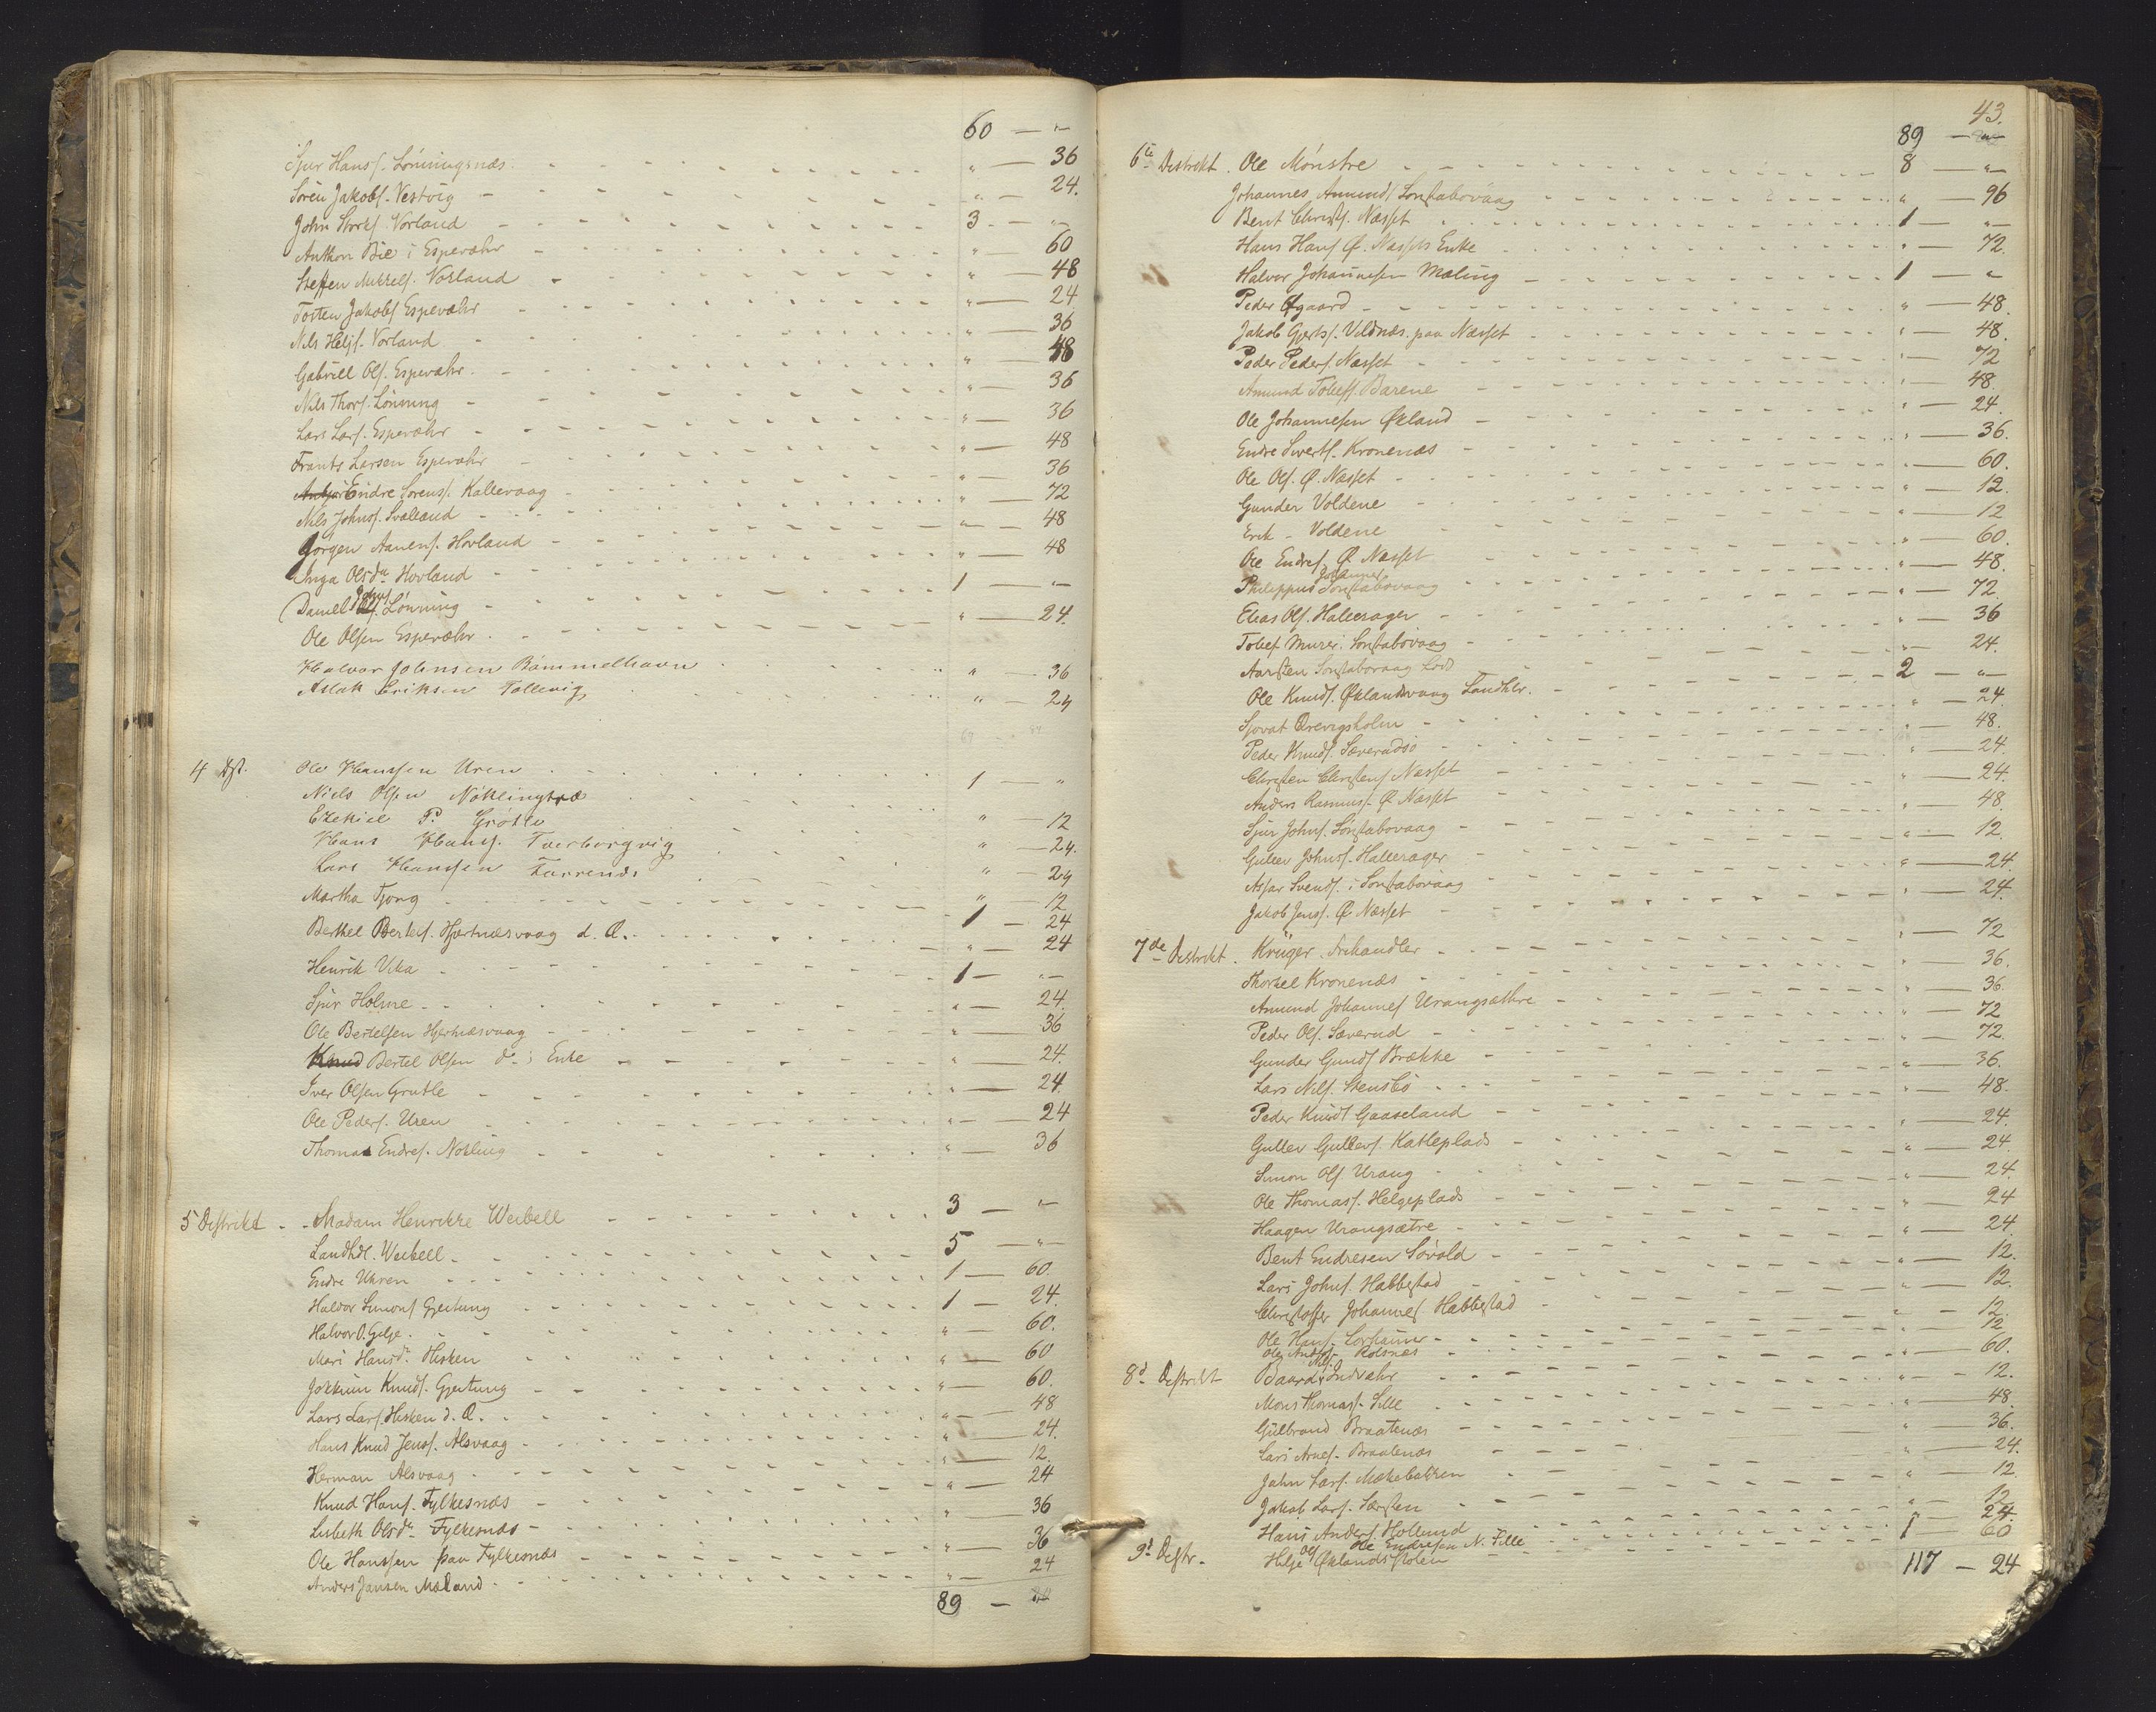 60 — "
Sjur Hansf. Lönningsnæs. " — 36
Sören Jakobf. Vestvig " — 24.
John Storkf. Vorland 3 — "
Anthon Bie i Espevæhr " — 60
Steffen Mikkelf. Vorland " — 48
Tosten Jakobf Espevæhr " — 24
Nils Heljf. Vorland " — 36
Gabriell Olf. Espevæhr. " — 48
Nils Thorf. Lönning " — 36
Lars Larf. Espevæhr " — 36
Frants Larsen Espevæhr " — 48
Endre Sörensf. Kallevaag " — 36
Nils Johnsf. Svalland " — 72
Jörgen Aanenf. Hovland " — 48
Inga Olsdr Hovland " — 48
Daniel Johnsf. Lönning 1 — "
Ole Olsen Espevæhr. " — 24.
Halvor Johnsen Bömmelhavn " — 36
Aslak Eriksen Tollevig " — 24
4 Dst. Ole Hansen Uren 1 — "
Niels Olsen Nöklingtræ
Ezekiel P. Grötle " — 12
Hans Hansf. Tverborgvig " — 24.
Lars Hanssen " — 24
Martha Tjong " — 12
Berthel Bertelf. Hjertnæsvaag d. Æ. 1 — 24
Henrik Vika " — 24
Sjur Holme 1 — "
Ole Bertelsen Hjertnæsvaag " — 24.
Knud Bertel Olsen do. s Enke " — 36
Iver Olsen Grutle " — 24.
Ole Pedersf. Uren " — 24.
Thomas Endresf. Nökling " — 24
" — 36
5 Distrikt Madam Henrikke Weibell 3 — "
Landhdl. Weibell 5 — "
Endre Uhren 1 — 60.
Haldor Simonsf Gjeitung 1 — 24.
Halvor O. Gilje " — 60.
Mari Hansdr. Hisken " — 60
Jokkum Knudsf. Gjeitung " — 60.
Lars Larsf. Hisken d. Æ. " — 48
Hans Knud Jensf. Alsvaag " — 24.
Herman Alsvaag " — 12.
Knud Hansf. Fylkesnæs " — 24
Lisbeth Olsdr. Fylkesnæs " — 36
Ole Hanssen paa Fylkesnæs " — 36
Anders Jansen Mæland " — 24
89 — 24
43.
89 — "
6te Distrikt. Ole Mönstre 8 — "
Johannes Amundsf Sönstabövaag " — 96
Bent Christf. Næsset 1 — "
Hans Hansf Ø. Næssets Enke " — 72.
Halvor Johannesen Mæling 1 — "
Peder Øgaard " — 48.
Jakob Gjertsf. Vildnæs. paa Næsset " — 48.
Peder Pedersf. Næsset " — 72
Amund Tollefsf. Barene " — 48.
Ole Johannesen Økland " — 24.
Endre Sivertsf. Kronenæs " — 36.
Ole Olsf. Ø. Næsset " — 60.
Gunder Voldene " — 12.
Erik — Voldene " — 12
Ole Endresf. Ø Næsset " — 60.
Philippus Johannes Sönstabövaag " — 48.
Elias Olsf. Hallerager " — 72.
Tollef Murer i Sönstabövaag " — 36
Aarsten Sönstabövaag Lods " — 24.
Ole Knudsf. Øklandsvaag Landhlr. 2 — "
Sjovat Drevigsholm " — 24.
Peder Knudsf. Sæverudsö " — 48.
Christen Christensf Næsset " — 24.
Anders Rasmusf. Ø Næsset " — 24.
Sjur Johnsf. Sönstabövaag " — 48.
Gullev Johnsf. Hallerager " — 12.
Assar Svendsf. i Sönstabövaag " — 24.
Jakob Jensf. Ø Næsset " — 24.
7de Distrikt. Krüger. Arkandler " — 72
Thorkel Kronenæs " — 36.
Amund Johannesf Urangsæthre " — 36.
Peder Olsf. Sæverud " — 72
Gunder Gundsf Brække " — 72.
Lars Nilsf. Stensbö " — 36.
Peder Knudsf Gaaseland " — 48.
Gullev Gullevsf. Katleplads " — 24.
Simon Olsf Urang " — 24.
Ole Thomassf. Helgeplads " — 24
Haagen Urangsætre " — 24
Bent Endresen Sövold " — 24.
Lars Johnsf. Habbestad " — 12.
Christoffer Johannesf Habbestad " — 12.
Ole Hansf. " — 12.
Ole Andersf. Rolsnæs " — 72
8d Distrikt Baard Nilsf. Indvæhr " — 60.
Mons Thomasf. Sille " — 12.
Gulbrand Braatenæs " — 48.
Lars Arnesf. Braatenæs " — 36.
John Larsf. Mækebakken " — 24.
Jakob Larsf. Særsten " — 12
Hans Andersf. Hollund " — 12
Ole Endresen N. Fille " — 24.
9d Distr. Helje Olsf Øklandsstölen 1 — 60
117 — 24